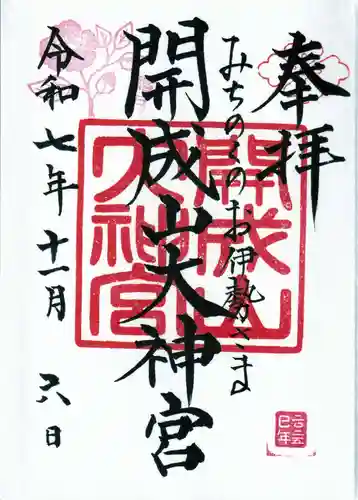 奉拝
みちのくのお伊勢さま
開成山大神宮
令和七年十一月六日
開成山大神宮
二〇二五
巳年